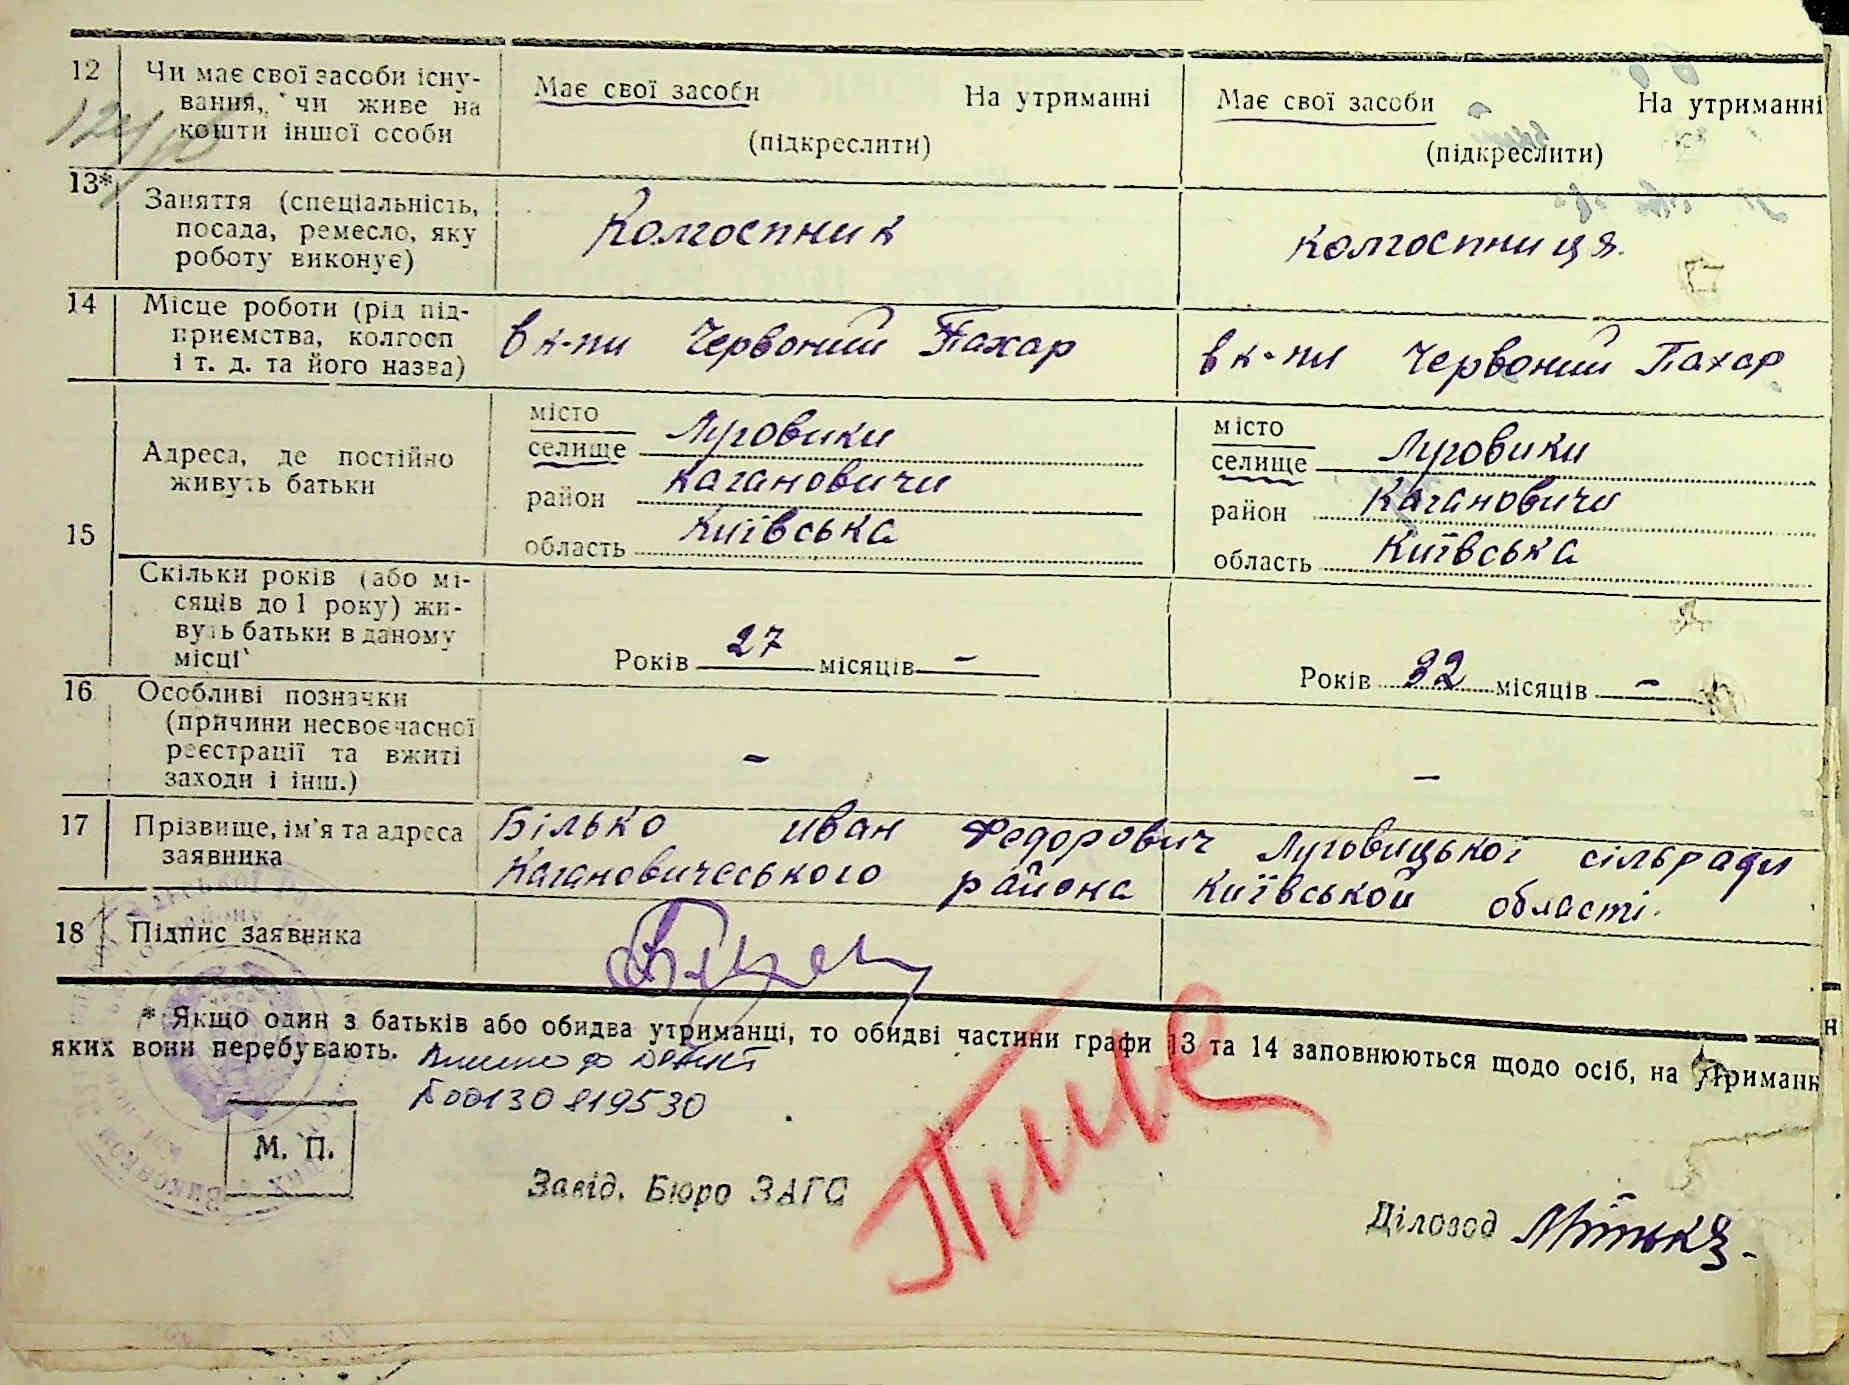 12 Чи має свої засоби існу-
вання, чи живе на
кошти іншої особи
Має свої засоби На утриманні
(підкреслити)
Має свої засоби На утриманні
(підкреслити)
13* Заняття (спеціальність,
посада, ремесло, яку
роботу виконує)
Колгоспник
колгоспниця.
14 Місце роботи (рід під-
приємства, колгосп
і т. д. та його назва)
в к-пи Червоний Пахар
в к-пи Червоний Пахар
15
Адреса, де постійно
живуть батьки
місто
селище Луговики
район Кагановичи
область Київська
місто
селище Луговики
район Кагановичи
область Київська
Скільки років (або мі-
сяців до 1 року) жи-
вуть батьки в даному
місці
Років 27 місяців -
Років 32 місяців -
16 Особливі позначки
(причини несвоєчасної
реєстрації та вжиті
заходи і інш.)
-
-
17 Прізвище, ім'я та адреса
заявника
Білько Иван Федорович Луговицької сільради
Кагановичеського района Київськой області.
18 Підпис заявника
* Якщо один з батьків або обидва утриманці, то обидві частини графи 13 та 14 заповнюються щодо осіб, на утриманн
яких вони перебувають.
130819530
М. П.
Завід. Бюро ЗАГС
Діловод